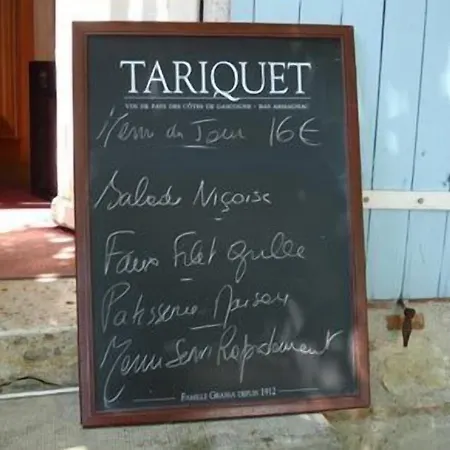 TARIQUET
VIN DE PAYS DES CÔTES DE GASCOGNE - BAS ARMAGNAC
Menu du Jour 16€
Salade Niçoise
Faux Filet grillé
Patisserie Maison
Menu Servi Rapidement
FAMILLE GRASSA DEPUIS 1912